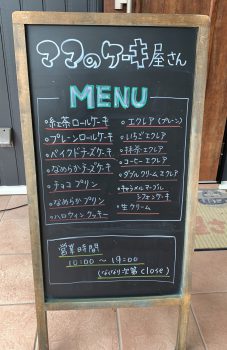 ママのケーキ屋さん
MENU
○紅茶ロールケーキ
○プレーンロールケーキ
○ベイクドチーズケーキ
○なめらかチーズケーキ
○チョコプリン
○なめらかプリン
○ハロウィンクッキー
○エクレア(プレーン)
○いちごエクレア
○抹茶エクレア
○コーヒーエクレア
○ダブルクリームエクレア
○キャラメルマーブル
シフォンケーキ
○生クリーム
営業時間
10:00～19:00
(なくなり次第close)